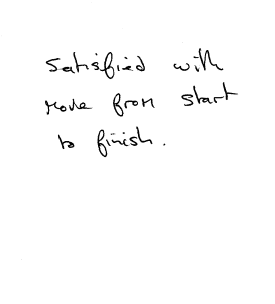 Satisfied with
move from start
to finish.